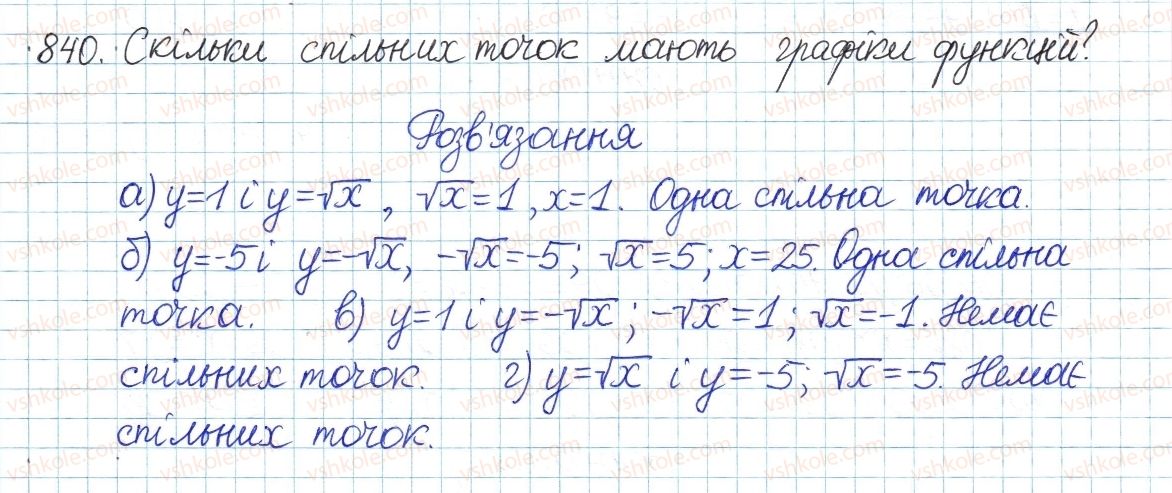 840. Скільки спільних точок мають графіки функцій?
Розв'язання
а) y=1 і y=√x, √x=1, x=1. Одна спільна точка.
б) y=-5 і y=-√x, -√x=-5; √x=5; x=25. Одна спільна
точка. в) y=1 і y=-√x; -√x=1; √x=-1. Немає
спільних точок. г) y=√x і y=-5; √x=-5. Немає
спільних точок.